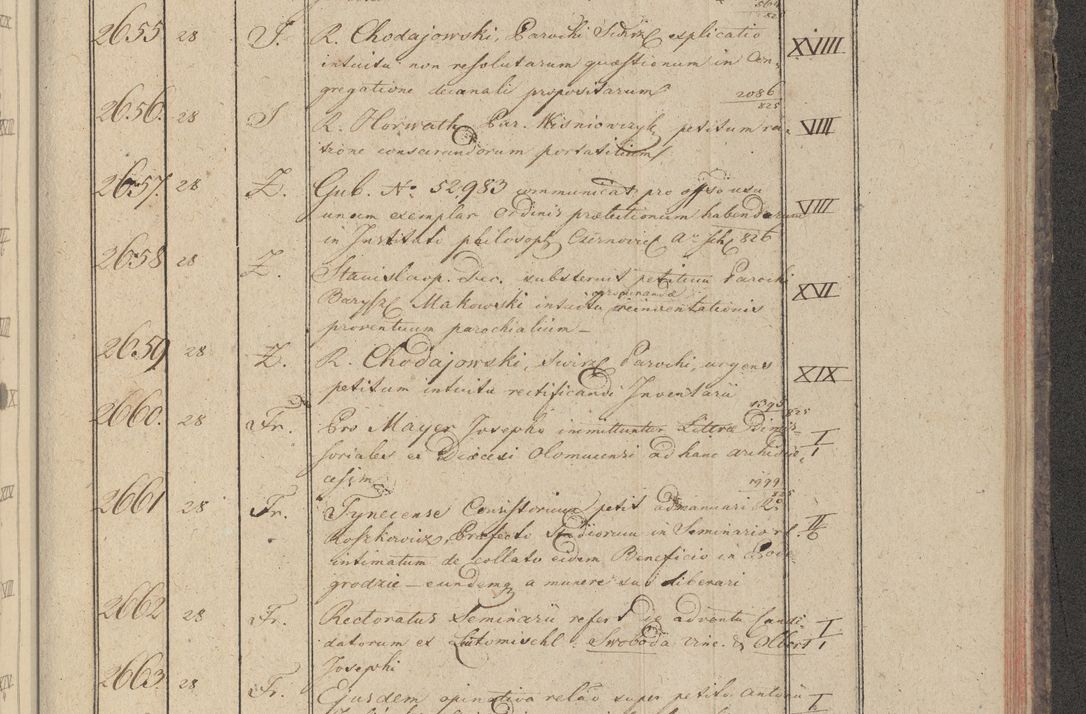 2655 28 S. R. Chodajowski, Parochi Swirz explicatio XVIII
intuitu non resolutarum quæstionum in Con-
gregatione decanali propositarum 2086/825
2656. 28 S R. Horwath Par. Wisniowczyk petitum ra- VIII
tione consecrandorum portatilium
2657. 28 Z. Gub. No 52983 communicat pro offoso usu VIII
unum exemplar Ordinis prælectionum habendarum
in Instituti philosoph Czernovic
2658 28 Z. Stanislaop. Dec. substernit petitum Parochi XVI
Barysz Makowski intuitu reinventationis
proventuum parochialium
2659 28 Z. R. Chodajowski, Swirz Parochi, urgens XIX
petitum intuitu rectificandi Inventarii
1395/825
2660. 28 Fr. Pro Mayer Josepho immittuntur Littræ Dimis- I
soriales ex Diœcesi Olomucensi ad hanc Archidiœ-
cesim 1999/825
2661 28 Fr. Tynecense Consistorium petit admanuari R. II
Koszkowicz, Præfecto Studiorum in Seminario rl.
intimatum de collato eidem Beneficio in
grodzie – eundemq a munere suo liberari
2662 28 Fr. Rectoratus Seminarii refert de adventu Candi- I
datorum ex Lutomischl. Swoboda Vinc. & Olbert
Josephi
2663. 28 Fr. Ejusdem opinativa relão super petito Antonii I